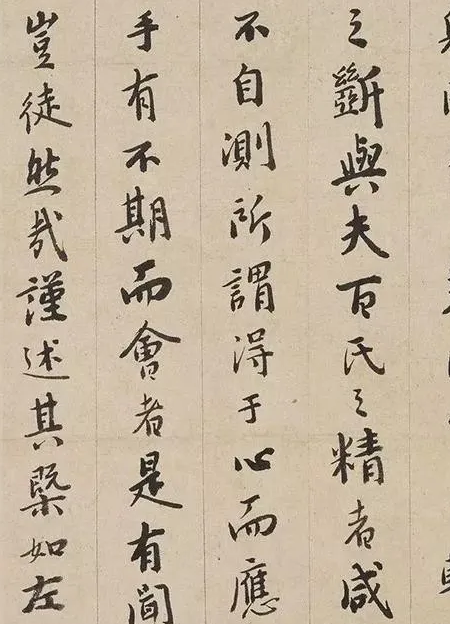 之斲與夫百氏之精者咸
不自測所謂得于心而應
手有不期而會者是有間
豈徒然哉謹述其槩如左